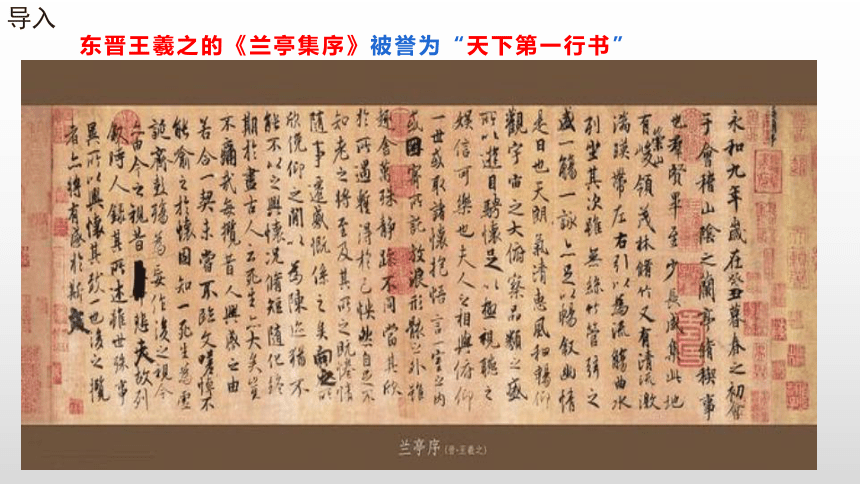 导入
东晋王羲之的《兰亭集序》被誉为“天下第一行书”
永和九年歲在癸丑暮春之初會
于會稽山陰之蘭亭脩稧事
也羣賢畢至少長咸集此地
有崇山峻領茂林脩竹又有清流激
湍暎帶左右引以為流觴曲水
列坐其次雖無絲竹管弦之
盛一觴一詠亦足以暢敘幽情
是日也天朗氣清惠風和暢仰
觀宇宙之大俯察品類之盛
所以遊目騁懷足以極視聽之
娛信可樂也夫人之相與俯仰
一世或取諸懷抱悟言一室之內
或因寄所託放浪形骸之外雖
趣舍萬殊靜躁不同當其欣
於所遇蹔得於己怏然自足不
知老之將至及其所之既惓情
隨事遷感慨係之矣向之所
欣俛仰之閒以為陳迹猶不
能不以之興懷況脩短隨化終
期於盡古人云死生亦大矣豈
不痛哉每攬昔人興感之由
若合一契未嘗不臨文嗟悼不
能喻之於懷固知一死生為虛
誕齊彭殤為妄作後之視今
亦由今之視昔悲夫故列
敘時人錄其所述雖世殊事
異所以興懷其致一也後之攬
者亦將有感於斯文
兰亭序(晋·王羲之)